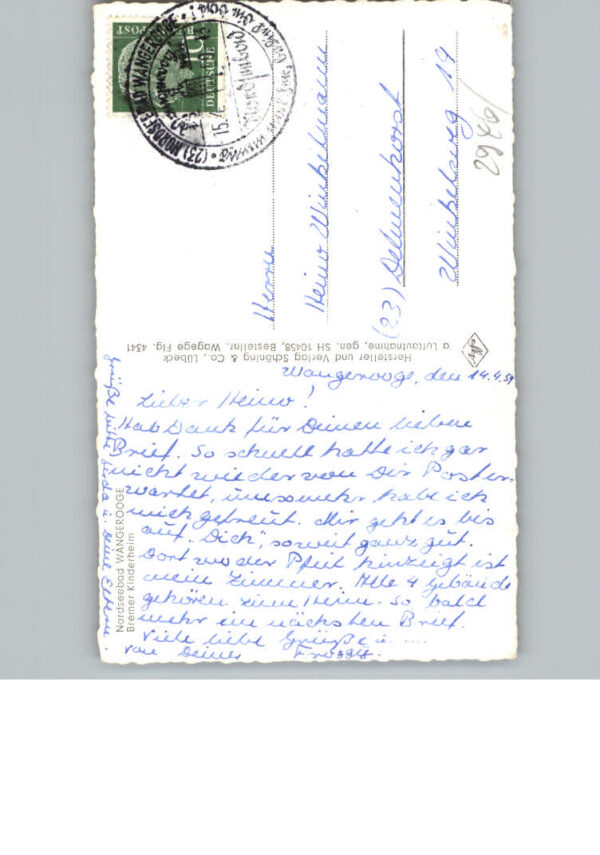 Wangerooge, den 14.4.59
Lieber Heino!
Hab Dank für Deinen lieben
Brief. So schnell hatte ich gar
nicht wieder von Dir Post er-
wartet, umsomehr habe ich
mich gefreut. Mir geht es bis
auf „Dich", soweit ganz gut.
Dort wo der Pfeil hinzeigt ist
mein Zimmer. Alle 4 Gebäude
gehören zum Heim. So bald
mehr im nächsten Brief.
Viele liebe Grüße u. ....
von Deiner
Grüße bitte u. Deine Eltern.
Nordseebad WANGEROOGE
Bremer Kinderheim
Hersteller und Verlag Schöning & Co., Lübeck
a Luftaufnahme, gen. SH 10458, Bestellnr. Wagege Flg. 4341
Herrn
Heino Winkelmann
(23) Delmenhorst
Winkelweg 19
2946/
DEUTSCHE
BUNDESPOST
10
(23) NORDSEEBAD WANGEROOGE